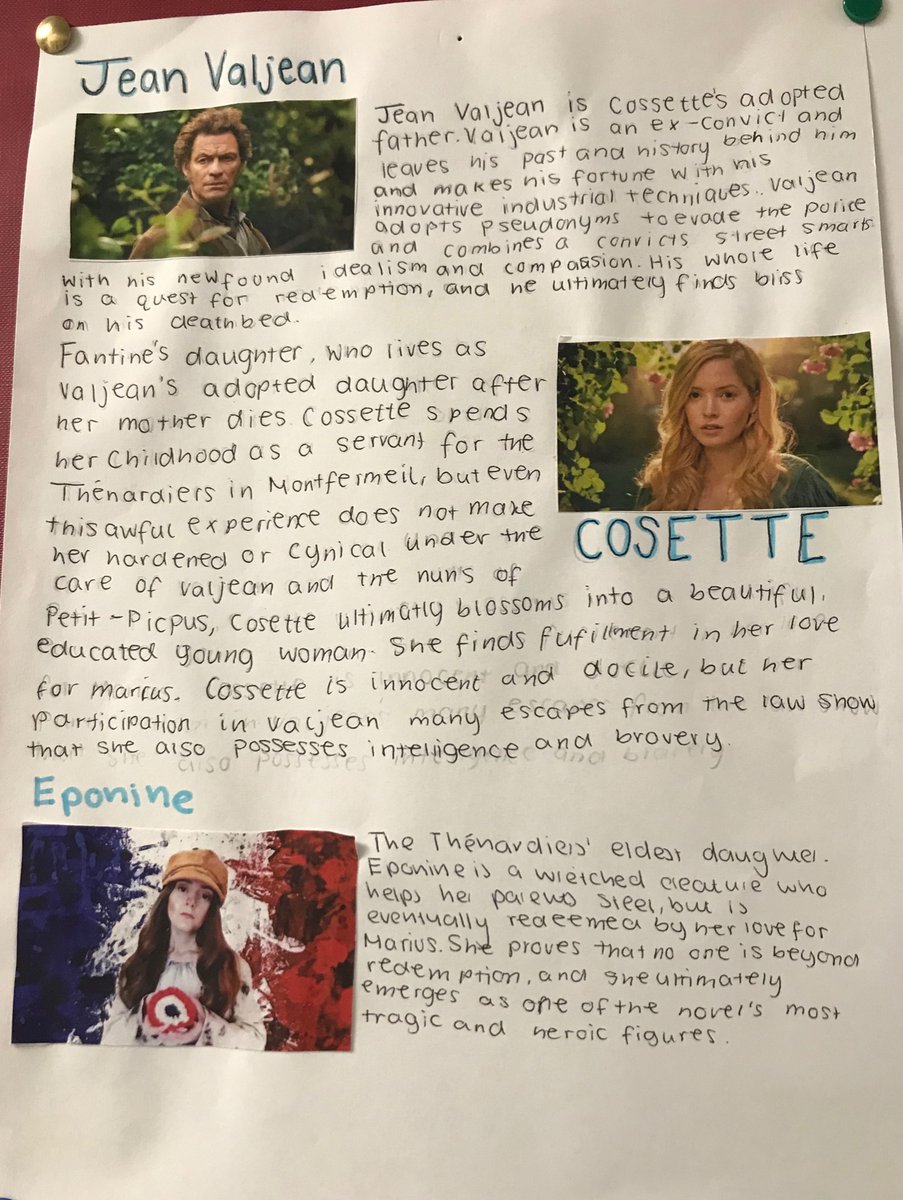 Jean Valjean
Jean Valjean is Cossette's adopted
father. Valjean is an ex-convict and
leaves his past and history behind him
and makes his fortune with his
innovative industrial techniques. Valjean
adopts pseudonyms to evade the police
and combines a convicts street smarts
with his newfound idealism and compassion. His whole life
is a quest for redemption, and he ultimately finds bliss
on his deathbed.
Fantine's daughter, who lives as
Valjean's adopted daughter after
her mother dies Cossette spends
her childhood as a servant for the
Thénardiers in Montfermeil, but even
this awful experience does not make
her hardened or cynical under the
care of Valjean and the nuns of
Petit-Picpus, Cosette ultimatly blossoms into a beautiful,
educated young woman. She finds fufillment in her love
for marius. Cossette is innocent and docile, but her
participation in valjean many escapes from the law show
that she also possesses intelligence and bravery.
COSETTE
Eponine
The Thénardiers' eldest daughter.
Eponine is a wretched creature who
helps her parents steel, but is
eventually redeemed by her love for
Marius. She proves that no one is beyond
redemption, and she ultimately
emerges as one of the novel's most
tragic and heroic figures.